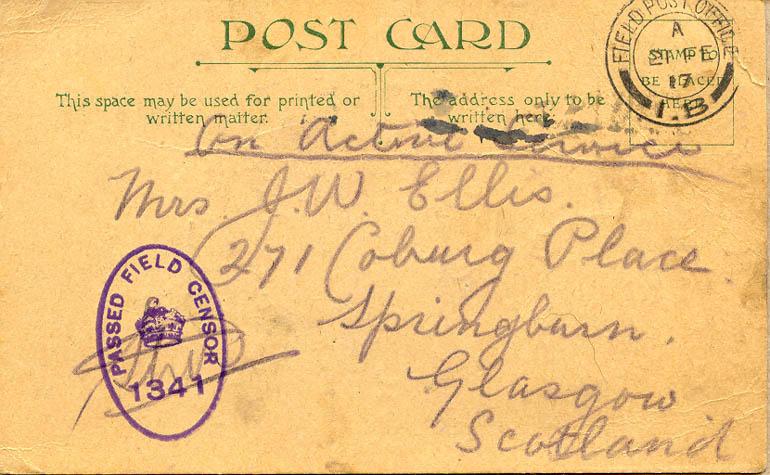 POST CARD
This space may be used for printed or written matter.
The address only to be written here.
STAMP TO BE PLACED HERE
FIELD POST OFFICE
A
21 FE
17
1.B
On Active Service
Mrs. J.W. Ellis.
271 Coburg Place.
Springburn.
Glasgow
Scotland
PASSED FIELD CENSOR
1341